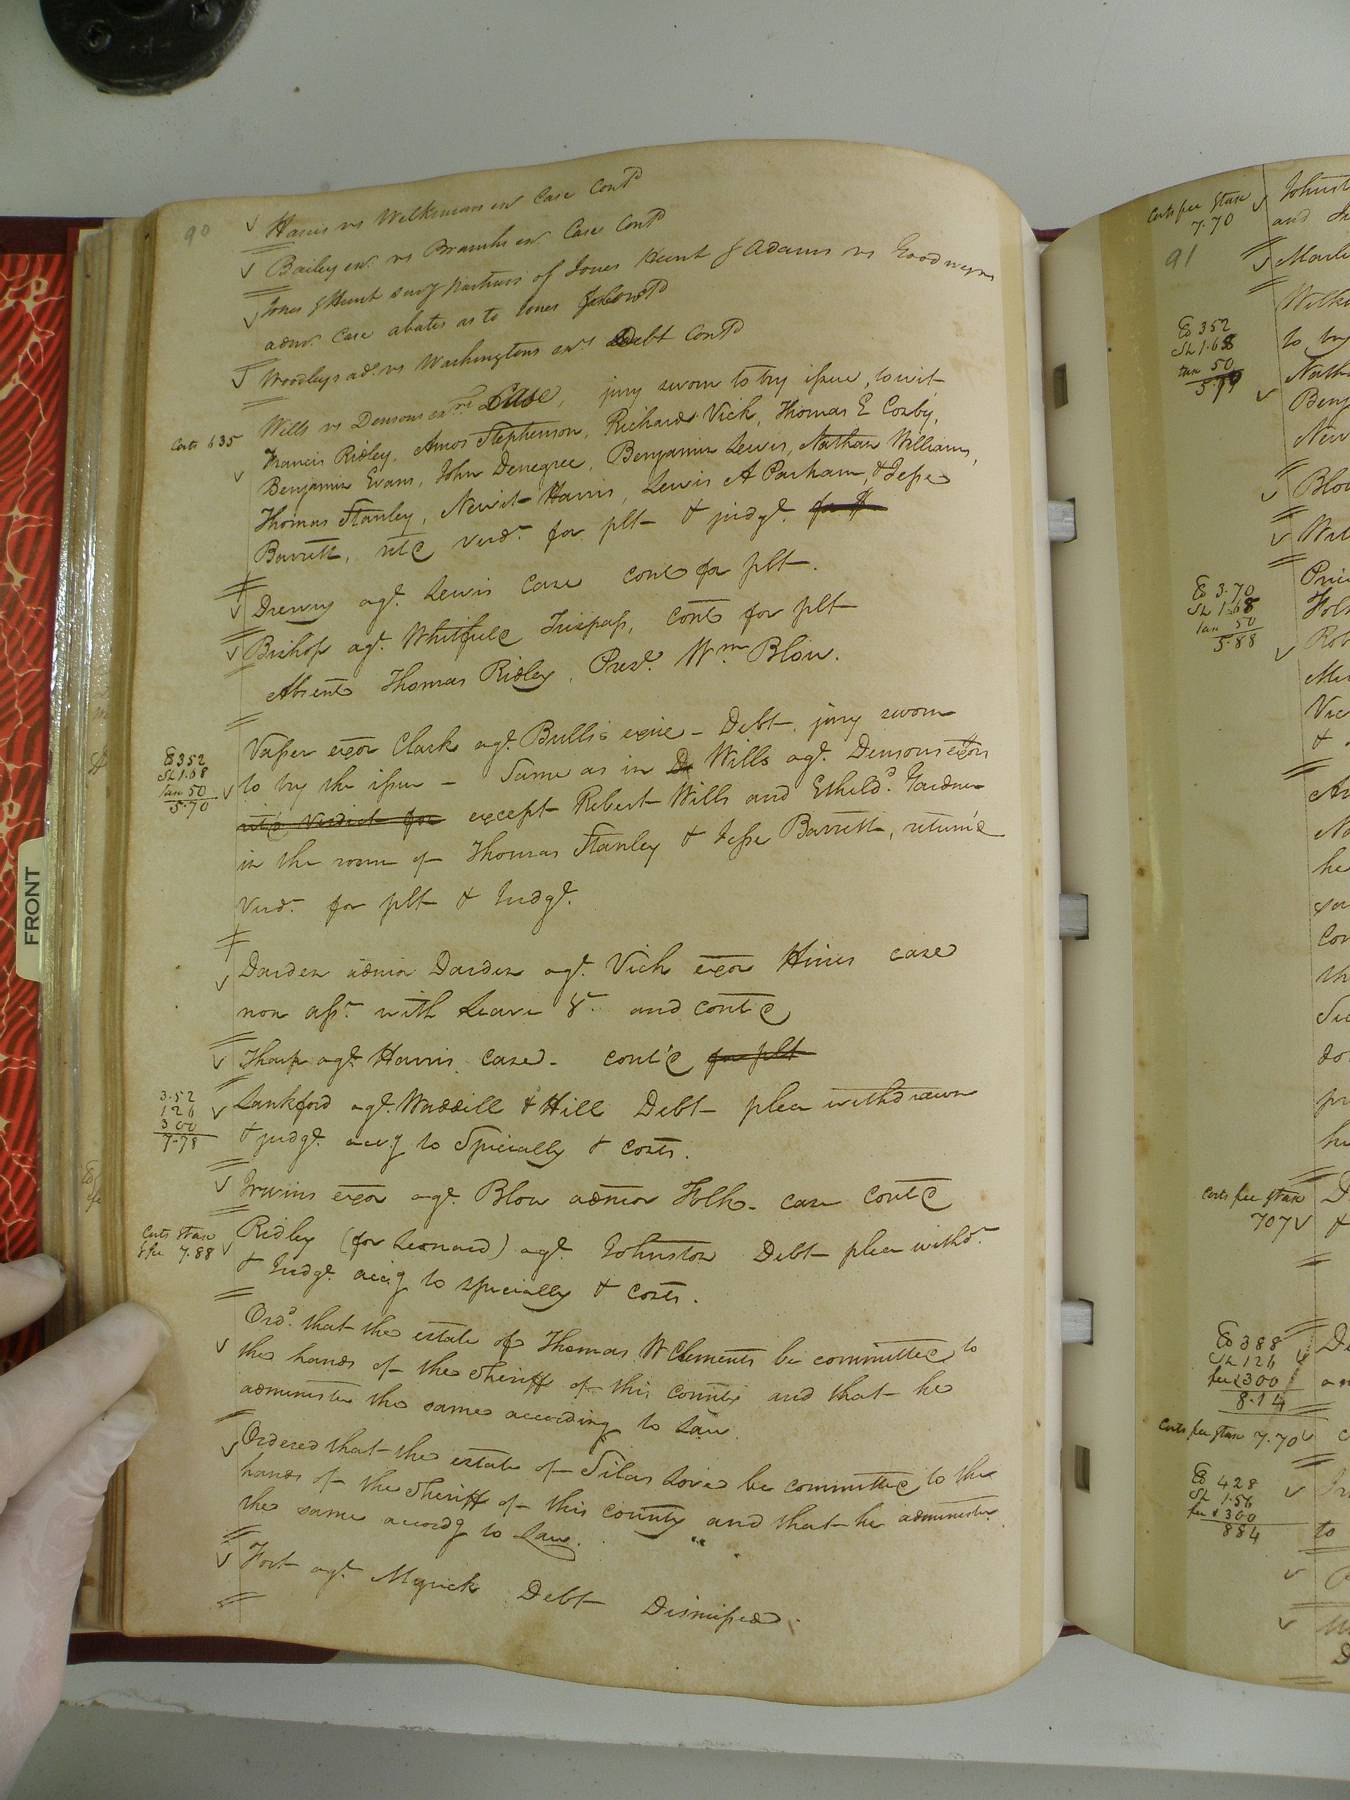 90
Harris vs Wilkinsons exr Case Contd
Bailey exr. vs Branchs exr. Case Contd
Jones & Hunt surv partners of Jones Hunt & Adams vs Goodwyns
admr. Case abates as to Jones Contd
Woodleys adr. vs Washingtons exrs Debt Contd
Costs 635
Wills vs Densons exrs Case, jury sworn to try issue, to wit
Francis Ridley, Amos Stephenson, Richard Vick, Thomas E Cosby,
Benjamin Evans, John Denegree, Benjamin Lewis, Nathan Williams,
Thomas Stanley, Newit Harris, Lewis A Parham, & Jesse
Barrett, retd verdt. for plt & judgt.
Drewry agt. Lewis Case cont for plt.
Bishop agt. Whitfield Trespass, cont for plt
Absent Thomas Ridley, Prest. Wm Blow.
Co 352
SL 1.68
tax 50
5.70
Vasser exor Clark agt. Bulls exix - Debt, jury sworn
to try the issue - Same as in Wills agt. Densons exors
retd verdict for except Robert Wills and Etheld. Gardner
in the room of Thomas Stanley & Jesse Barrett, returnd
verdt. for plt & Judgt.
Darden admor Darden agt. Vick exor Hines case
non asst. with Leave &c. and contd
Tharp agt. Harris case. cont'd for plt
3.52
126
300
7.78
Lankford agt. Waddill & Hill Debt plea withdrawn
& judgt. accg to Specially & costs.
Irwins exor agt. Blow admor Holk. case contd
Costs Stax
& fee 7.88
Ridley (for Leonard) agt. Johnston Debt plea withdr.
& Judgt. accg to specially & costs.
Ord. that the estate of Thomas W Clements be committed to
the hands of the Sheriff of this county and that he
administer the same according to Law.
Ordered that the estate of Silas Love be committed to the
hands of the Sheriff of this county and that he administer
the same accordg to Law.
Fort agt. Myrick Debt Dismissed.
FRONT
Costs fee Stax
7.70
91
Co 352
SL 1.68
tax 50
5.70
Co 3.70
SL 1.68
tax 50
5.88
Costs fee Stax
707
Co 388
SL 126
fee 300
8.14
Costs fee Stax 7.70
Co 428
SL 1.56
fee 300
884